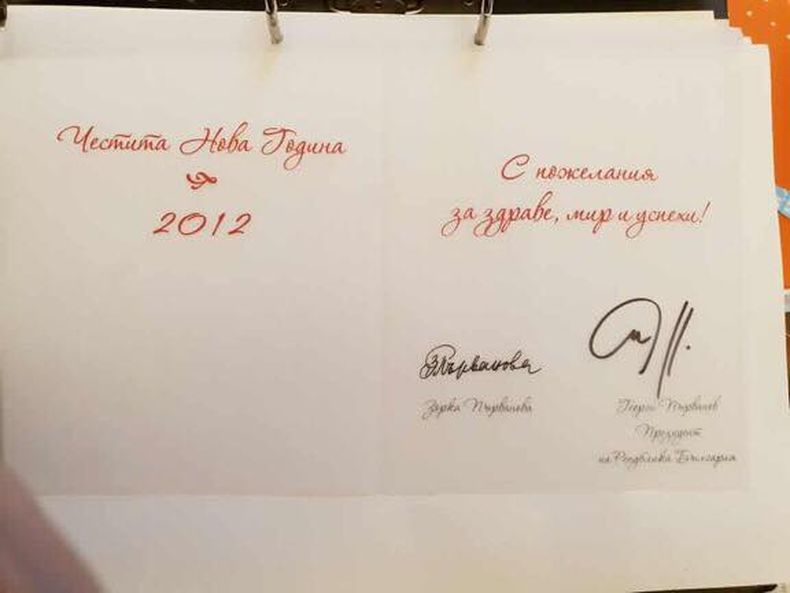 Честита Нова Година
2012
С пожелания
за здраве, мир и успехи!
ЗПърванова
Зорка Първанова
Георги Първанов
Президент
на Република България